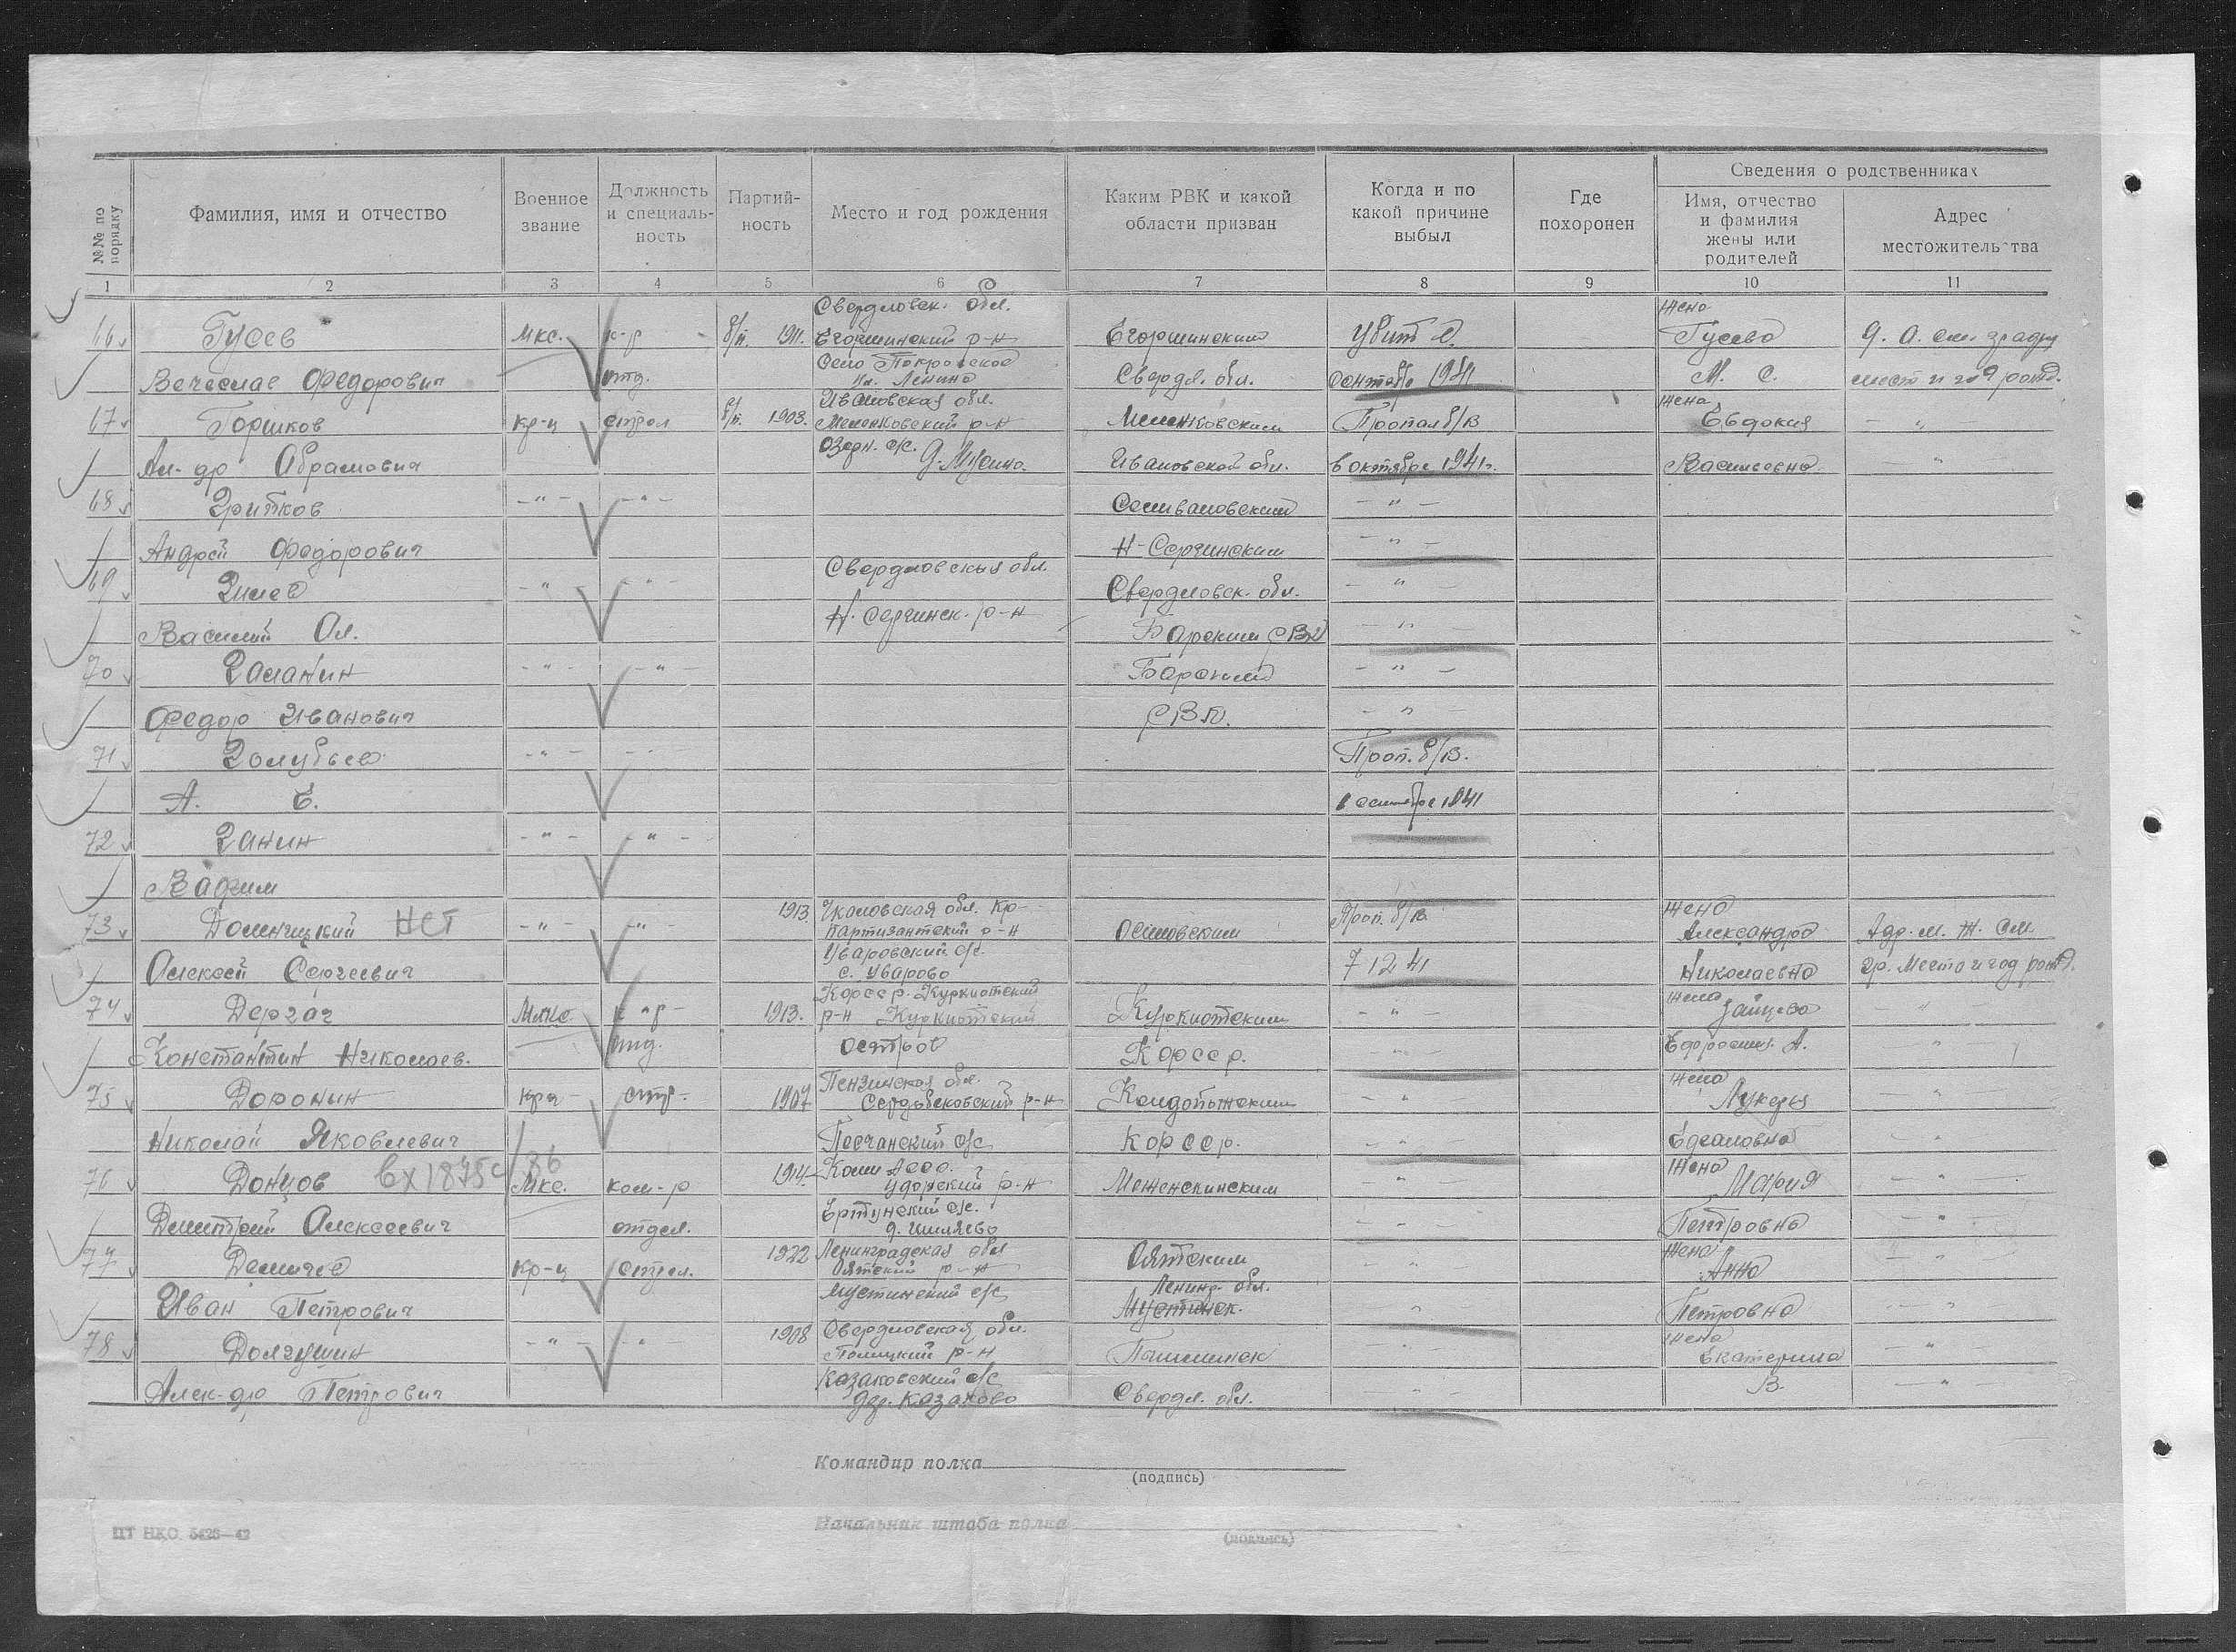 №№ по порядку
Фамилия, имя и отчество
Военное звание
Должность и специаль-ность
Партий-ность
Место и год рождения
Каким РВК и какой области призван
Когда и по какой причине выбыл
Где похоронен
Сведения о родственниках
Имя, отчество и фамилия жены или родителей
Адрес местожительства
1 2 3 4 5 6 7 8 9 10 11
Свердловск. обл. жена
66 Гусев мкс. к-р б/п. 1911. Егоршинский р-н Егоршинским Убит в Гусева
Село Покровское
Вечеслав Федорович отд. ул. Ленина Свердл. обл. сентябре 1941 М. С.
Ивановская обл. жена
67 Горшков кр-ц стрел б/п. 1903. Меленковский р-н Меленковским Пропал б/в Евдокия - " -
Озерн. с/с. д. Мусино.
Ал-др Абрамович Ивановской обл. в октябре 1941г. Васильевна "
68 Гритков - " - - " - Селивановским - " -
Андрей Федорович Н-Сергинским - " -
Свердловская обл.
69 - " - - " - Свердловск. обл. - " -
Н. Сергинск. р-н
Василий Ал. - " -
70 Галанин - " - - " - - " -
Федор Иванович - " -
71 Голубьев - " - - " - Проп. б/в.
А. Е. в сентябре 1941
72 Ганин - " - - " -
Вадим
1913. Чкаловская обл. Кр- жена
73 НЕТ - " - - " - Партизантский р-н Проп. б/в. Александра Адр. м. ж. см.
Уваровский с/с.
Алексей Сергеевич с. Уварово 7 12 41 Николаевна гр. Место и год рожд.
Кфсср. Куркиотский жена
74 Дергач Мкс к-р 1913. р-н Куркиотский Куркиотским - " - Зайцева - " -
Константин Николаев. отд. остров Кфсср. - " - А. - " -
Пензинская обл. жена
75 Доронин кр-ц стр- 1907 р-н Кондопожским - " - Лукерья - " -
Николай Яковлевич Песчанский с/с Кфсср. - " - "
76 Донцов вх 1875с/36 Мкс. ком-р 1914 Коми АССС. Удорский р-н - " - жена Мария - " -
Ертунский с/с.
Дмитрий Алексеевич отдел. - " - Петровна - " -
1922 Ленинградская обл жена
77 Демичев кр-ц стрел. Оятский р-н Оятским - " - Анна "
Ленинг. обл.
Иван Петрович Мустинский с/с Мустинск. " Петровна - " -
1908 Свердловская обл. жена
78 Долгушин - " - " р-н Пышминск - " - Екатерина - " -
Казаковский с/с
Алек-др Петрович дер. Казаково Свердл. обл. - " - В. - " -
Командир полка
(подпись)
Начальник штаба полка
(подпись)
ЦТ НКО. 5426—42